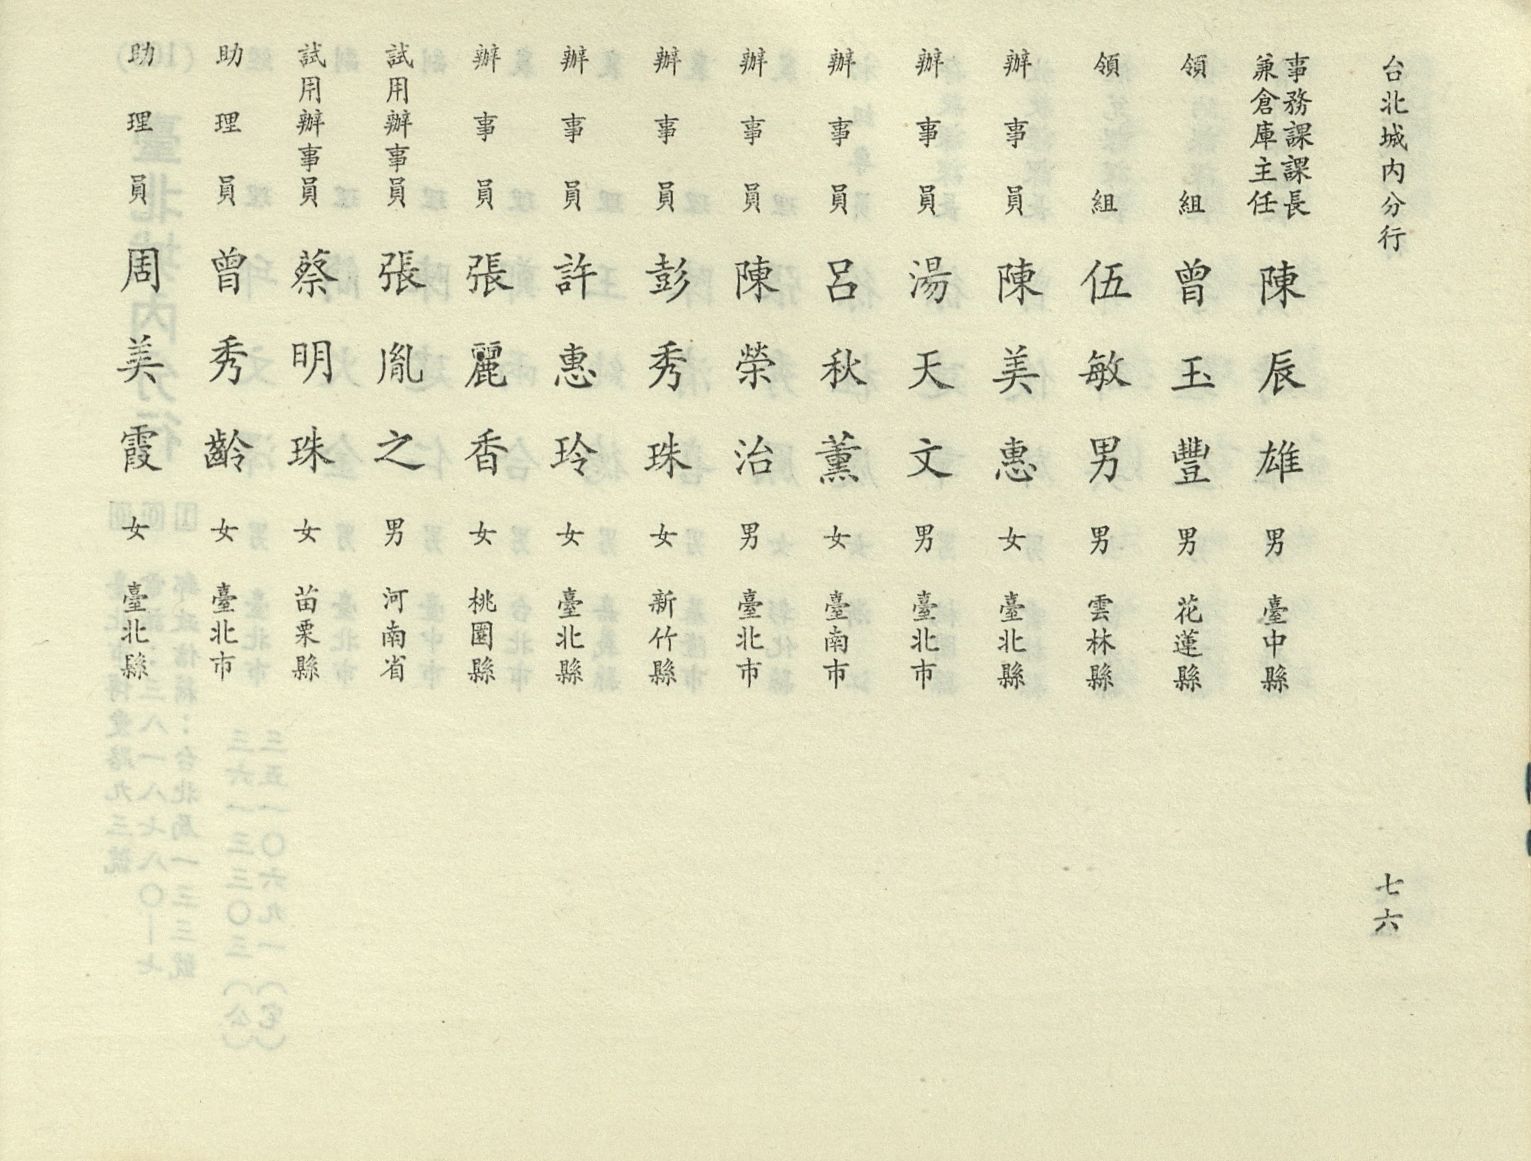 台北城内分行
七六
事務課課長兼倉庫主任 陳辰雄 男 臺中縣
領組 曾玉豐 男 花蓮縣
領組 伍敏男 男 雲林縣
辦事員 陳美惠 女 臺北縣
辦事員 湯天文 男 臺北市
辦事員 呂秋薰 女 臺南市
辦事員 陳榮治 男 臺北市
辦事員 彭秀珠 女 新竹縣
辦事員 許惠玲 女 臺北縣
辦事員 張麗香 女 桃園縣
試用辦事員 張胤之 男 河南省
試用辦事員 蔡明珠 女 苗栗縣
助理員 曾秀齡 女 臺北市
助理員 周美霞 女 臺北縣